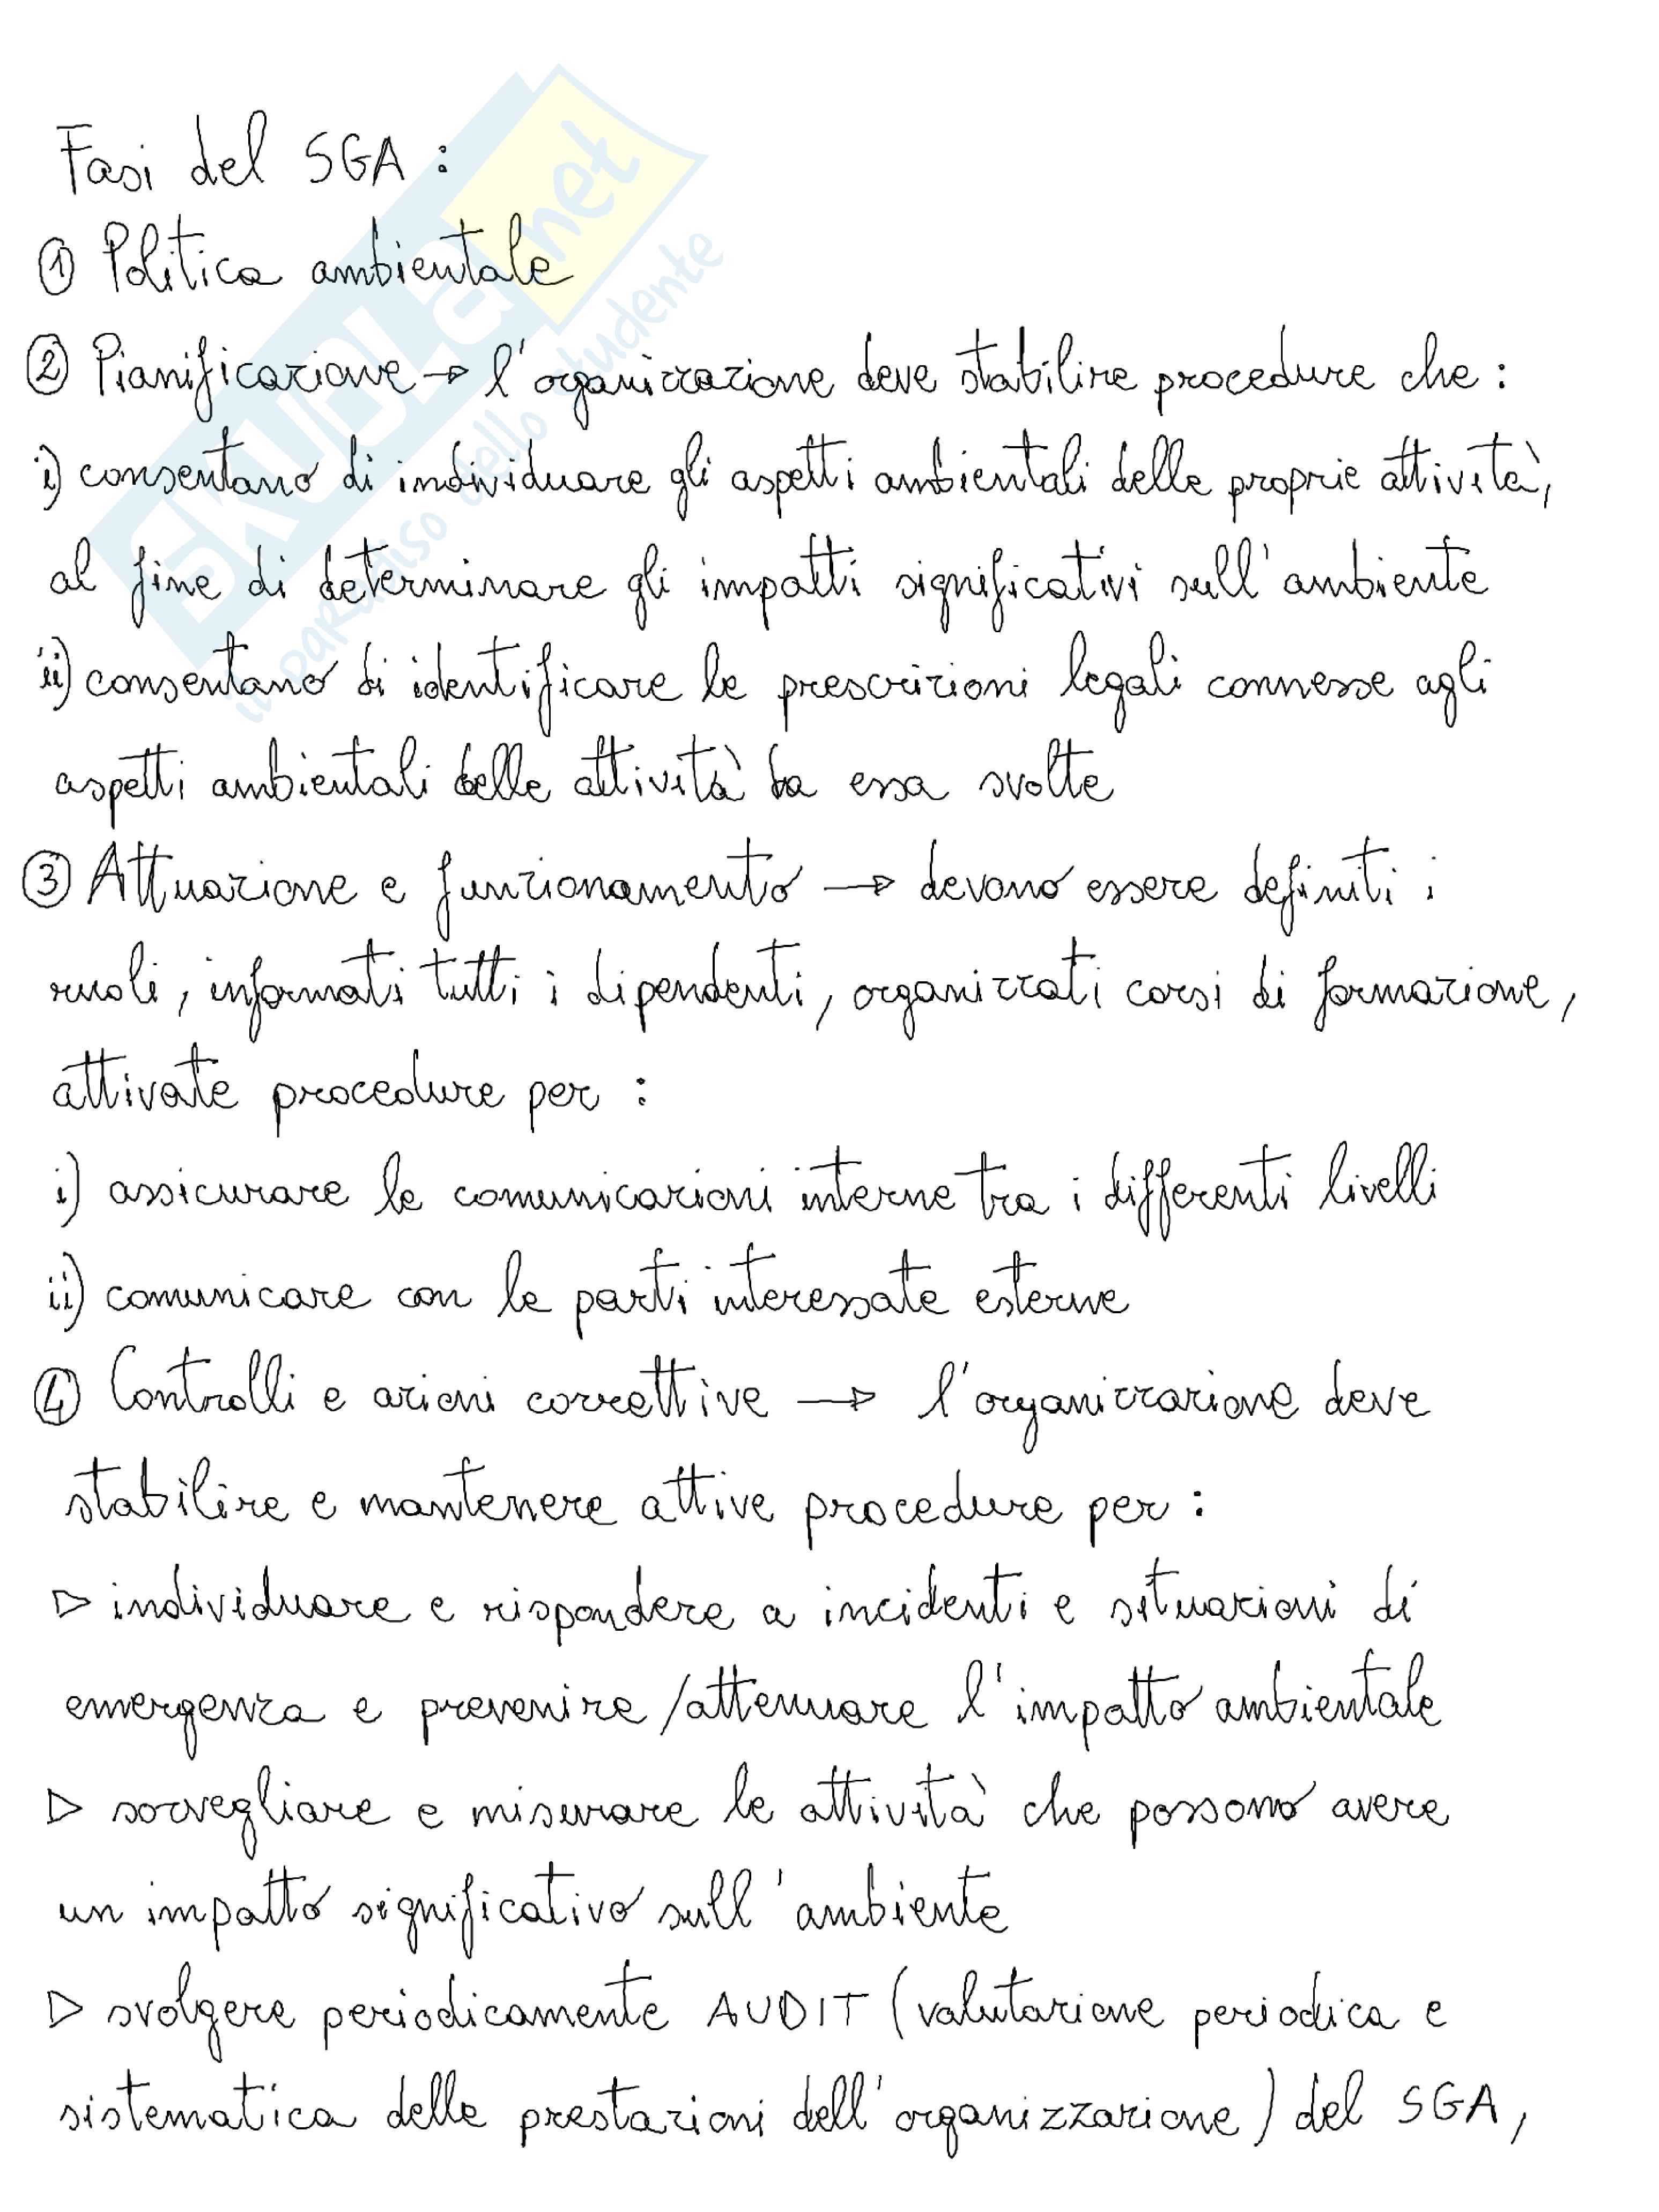 Fasi del SGA :
① Politica ambientale
② Pianificazione → l'organizzazione deve stabilire procedure che :
i) consentano di individuare gli aspetti ambientali delle proprie attività,
al fine di determinare gli impatti significativi sull'ambiente
ii) consentano di identificare le prescrizioni legali connesse agli
aspetti ambientali delle attività da essa svolte
③ Attuazione e funzionamento → devono essere definiti i
ruoli, informati tutti i dipendenti, organizzati corsi di formazione,
attivate procedure per :
i) assicurare le comunicazioni interne tra i differenti livelli
ii) comunicare con le parti interessate esterne
④ Controlli e azioni correttive → l'organizzazione deve
stabilire e mantenere attive procedure per :
▷ individuare e rispondere a incidenti e situazioni di
emergenza e prevenire /attenuare l'impatto ambientale
▷ sorvegliare e misurare le attività che possono avere
un impatto significativo sull'ambiente
▷ svolgere periodicamente AUDIT (valutazione periodica e
sistematica delle prestazioni dell'organizzazione) del SGA,
SKUOLA.net
il paradiso dello studente